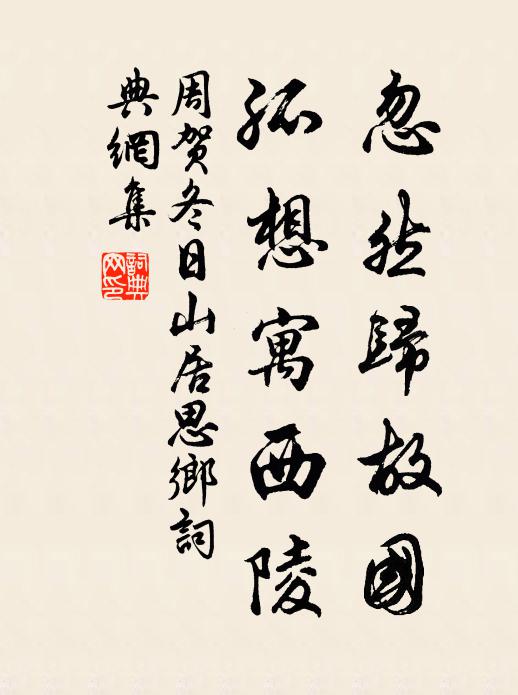 忽然歸故國
孤想寓西陵
周贺冬日山居思鄉詞
典網集
詞典
网印